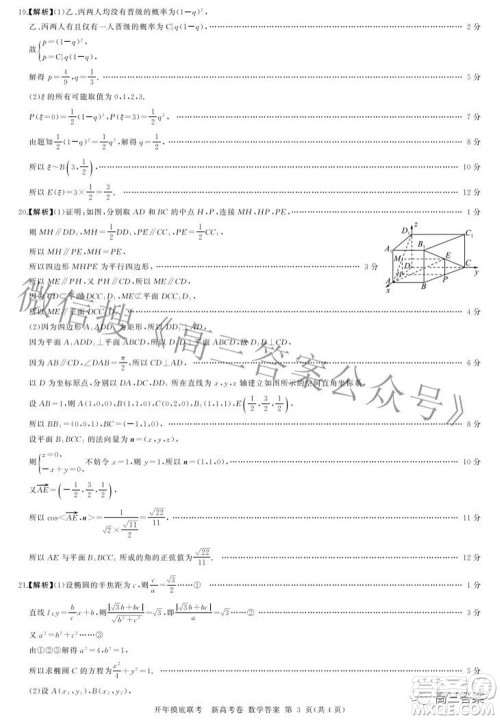 19.【解析】(1)乙、丙两人均没有晋级的概率为(1−q)²,
乙、丙两人有且仅有一人晋级的概率为C½q(1−q), 2分
故{p=(1−q)², p=C½q(1−q),
解得 p=4/9, q=1/3. 5分
(2)ξ的所有可能取值为0,1,2,3.
P(ξ=0)=1/2(1−q)², P(ξ=3)=1/2q², 7分
由题知1/2(1−q)²=1/2q²,解得 q=1/2, 8分
所以 ξ~B(3,1/2), 10分
所以 E(ξ)=3×1/2=3/2. 12分
20.【解析】(1)证明:如图,分别取 AD 和 BC 的中点 H,P,连接 MH,HP,PE, 1分
则 MH∥DD₁,MH=1/2DD₁,PE∥CC₁,PE=1/2CC₁,
所以 MH∥PE,MH=PE,
所以四边形 MHPE 为平行四边形, 3分
所以 ME∥PH,又 PH∥CD,所以 ME∥CD,
因为 CD⊂平面 DCC₁D₁,ME⊄平面 DCC₁D₁,
所以 ME∥平面 DCC₁D₁. 4分
(2)因为四边形 A₁ADD₁ 为矩形,所以 DD₁⊥AD,
因为平面 A₁ADD₁⊥平面 ABCD,所以 DD₁⊥平面 ABCD,
因为 AB∥CD,∠DAB=π/2,所以 CD⊥AD. 6分
以 D 为坐标原点,分别以 DA,DC,DD₁ 所在直线为 x,y,z 轴建立如图所示的空间直角坐标系.
设 AB=1,则 A(1,0,0),B(1,1,0),C(0,2,0),B₁(1,1,1),E(1/2,3/2,1/2),
所以 BB₁=(0,0,1),BC=(−1,1,0). 8分
设平面 B₁BCC₁ 的法向量为 n=(x,y,z),
则{z=0, −x+y=0, 不妨令 x=1,则 y=1,所以 n=(1,1,0), 10分
又AE=(−1/2,3/2,1/2),
所以 cos<AE,n>=1/(√2×√11/2)=√22/11, 11分
所以 AE 与平面 B₁BCC₁ 所成的角的正弦值为√22/11. 12分
21.【解析】(1)设椭圆的半焦距为 c,则c/a=√3/2……① 1分
直线 l:y=b/c x+b,则|√3b+bc|/√(b²+c²)=√3/2+1,即|√3b+bc|/a=√3/2+1……② 3分
又 a²=b²+c²……③
由①②③解得 a²=4,b²=1,
所以求椭圆 C 的方程为x²/4+y²=1. 5分
(2)设 A(x₁,y₁),B(x₂,y₂),
开年摸底联考 新高考卷 数学答案 第 3 页(共 4 页)
微信搜《高三答案公众号》
高三答案